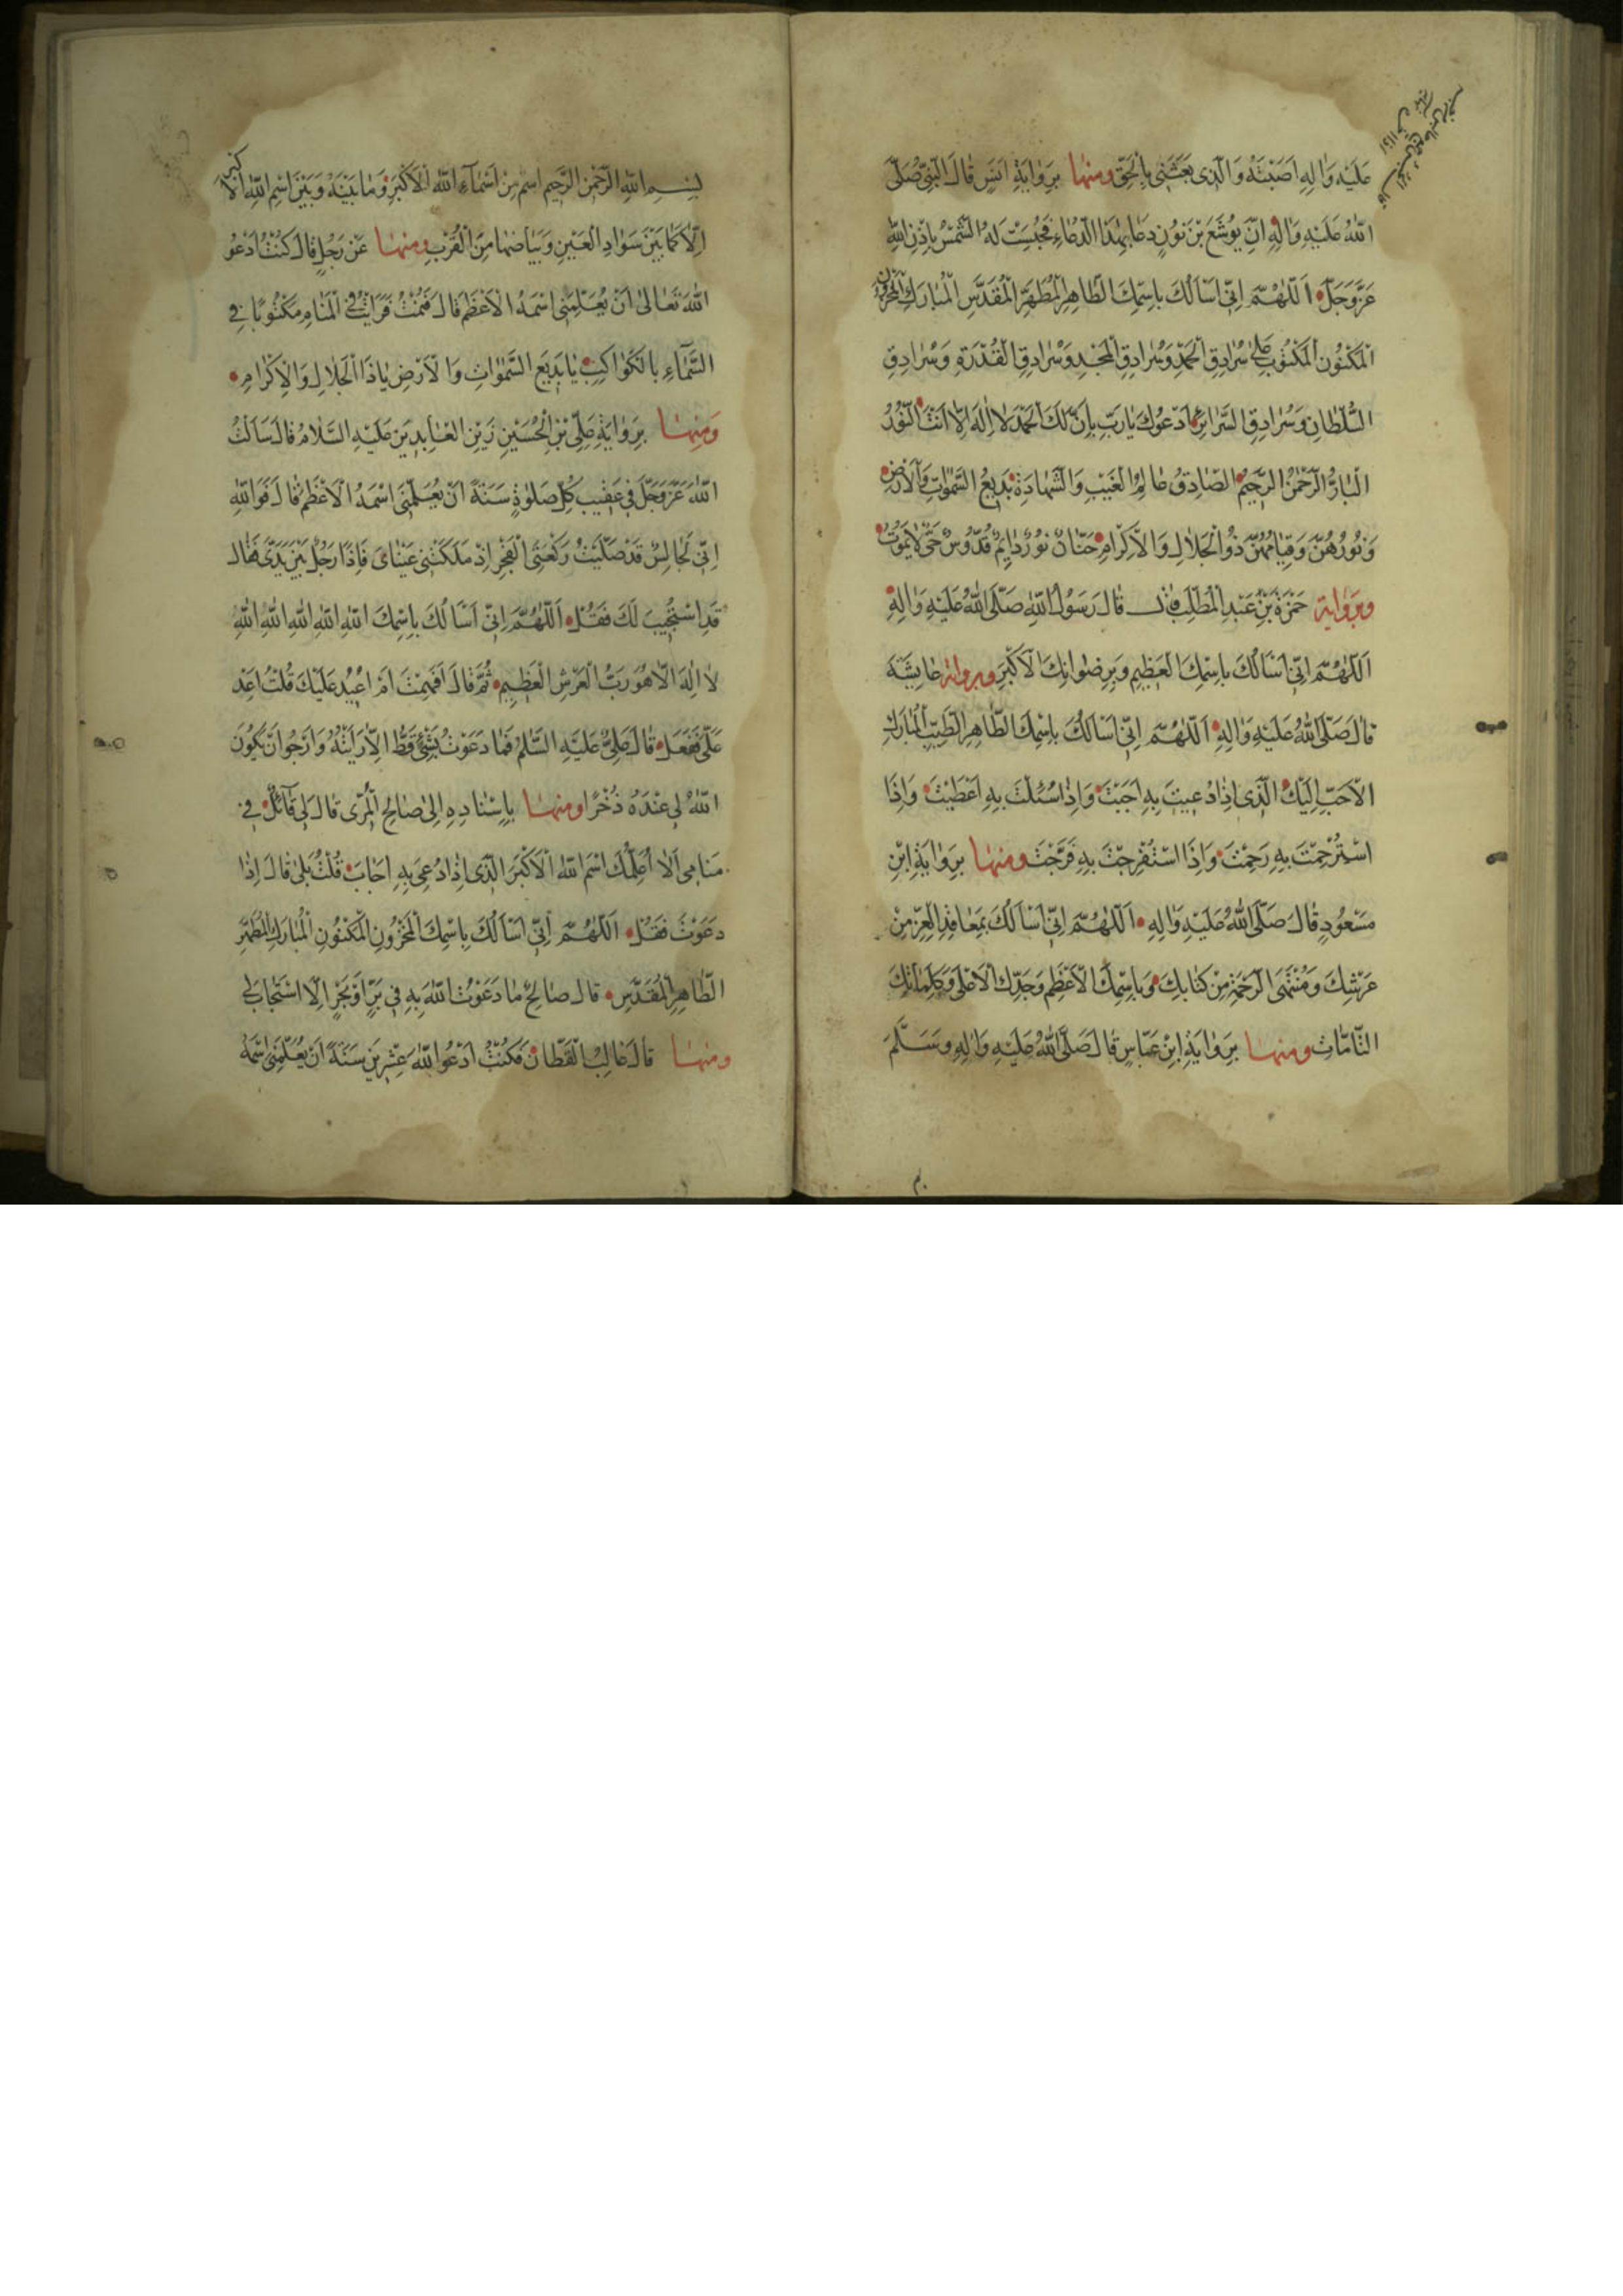 عَلَيْهِ وَالِهِ اَصَبْتَهُ وَالَّذِى بَعَثَنِى بِالْحَقِّ وَمِنْهَا بِرِوَايَةِ اَنَسٍ قَالَ النَّبِىُّ صَلَّى
اللّٰهُ عَلَيْهِ وَالِهِ اِنَّ يُوشَعَ بْنَ نُونٍ دَعَا بِهٰذَا الدُّعَاءِ فَحُبِسَتْ لَهُ الشَّمْسُ بِاِذْنِ اللّٰهِ
عَزَّوَجَلَّ اَللّٰهُمَّ اِنِّى اَسْاَلُكَ بِاسْمِكَ الطَّاهِرِ الْمُطَهَّرِ الْمُقَدَّسِ الْمُبَارَكِ الْمَخْزُونِ
الْمَكْنُونِ الْمَكْتُوبِ عَلٰى سُرَادِقِ الْحَمْدِ وَسُرَادِقِ الْمَجْدِ وَسُرَادِقِ الْقُدْرَةِ وَسُرَادِقِ
السُّلْطَانِ وَسُرَادِقِ السَّرَائِرِ اَدْعُوكَ يَارَبِّ بِاَنَّ لَكَ الْحَمْدَ لَا اِلٰهَ اِلَّا اَنْتَ النُّورُ
الْبَارُّ الرَّحْمٰنُ الرَّحِيمُ الصَّادِقُ عَالِمُ الْغَيْبِ وَالشَّهَادَةِ بَدِيعُ السَّمٰوَاتِ وَالْاَرْضِ
وَنُورُهُنَّ وَقِيَامُهُنَّ ذُو الْجَلَالِ وَالْاِكْرَامِ حَنَّانٌ نُورٌ دَائِمٌ قُدُّوسٌ حَىٌّ لَايَمُوتُ
وَبِرِوَايَةِ حَمْزَةَ بْنِ عَبْدِ الْمُطَّلِبِ قَالَ رَسُولُ اللّٰهِ صَلَّى اللّٰهُ عَلَيْهِ وَالِهِ
اَللّٰهُمَّ اِنِّى اَسْاَلُكَ بِاسْمِكَ الْعَظِيمِ وَبِرِضْوَانِكَ الْاَكْبَرِ وبرواية عَايِشَةَ
قَالَ صَلَّى اللّٰهُ عَلَيْهِ وَالِهِ اَللّٰهُمَّ اِنِّى اَسْاَلُكَ بِاسْمِكَ الطَّاهِرِ الطَّيِّبِ الْمُبَارَكِ
الْاَحَبِّ اِلَيْكَ الَّذِى اِذَا دُعِيتَ بِهِ اَجَبْتَ وَاِذَا سُئِلْتَ بِهِ اَعْطَيْتَ وَاِذَا
اسْتُرْحِمْتَ بِهِ رَحِمْتَ وَاِذَا اسْتُفْرِجْتَ بِهِ فَرَّجْتَ وَمِنْهَا بِرِوَايَةِ ابْنِ
مَسْعُودٍ قَالَ صَلَّى اللّٰهُ عَلَيْهِ وَالِهِ اَللّٰهُمَّ اِنِّى اَسْاَلُكَ بِمَعَاقِدِ الْعِزِّ مِنْ
عَرْشِكَ وَمُنْتَهَى الرَّحْمَةِ مِنْ كِتَابِكَ وَبِاسْمِكَ الْاَعْظَمِ وَجَدِّكَ الْاَعْلٰى وَكَلِمَاتِكَ
التَّامَّاتِ وَمِنْهَا بِرِوَايَةِ ابْنِ عَبَّاسٍ قَالَ صَلَّى اللّٰهُ عَلَيْهِ وَالِهِ وَسَلَّمَ
بِسْمِ اللّٰهِ الرَّحْمٰنِ الرَّحِيمِ اسْمٌ مِنْ اَسْمَاءِ اللّٰهِ الْاَكْبَرِ وَمَا بَيْنَهُ وَبَيْنَ اسْمِ اللّٰهِ الْاَكْبَرِ
اِلَّا كَمَا بَيْنَ سَوَادِ الْعَيْنِ وَبَيَاضِهَا مِنَ الْقُرْبِ وَمِنْهَا عَنْ رَجُلٍ قَالَ كُنْتُ اَدْعُو
اللّٰهَ تَعَالٰى اَنْ يُعَلِّمَنِى اسْمَهُ الْاَعْظَمَ قَالَ فَنِمْتُ فَرَاَيْتُ فِى الْمَنَامِ مَكْتُوبًا فِى
السَّمَاءِ بِالْكَوَاكِبِ يَا بَدِيعَ السَّمٰوَاتِ وَالْاَرْضِ يَاذَا الْجَلَالِ وَالْاِكْرَامِ
وَمِنْهَا بِرِوَايَةِ عَلِىِّ بْنِ الْحُسَيْنِ زَيْنِ الْعَابِدِينَ عَلَيْهِ السَّلَامُ قَالَ سَاَلْتُ
اللّٰهَ عَزَّوَجَلَّ فِى عَقِيبِ كُلِّ صَلٰوةٍ سَنَةً اَنْ يُعَلِّمَنِى اسْمَهُ الْاَعْظَمَ قَالَ فَوَاللّٰهِ
اِنِّى لَجَالِسٌ قَدْ صَلَّيْتُ رَكْعَتَىِ الْفَجْرِ اِذْ مَلَكَتْنِى عَيْنَاىَ فَاِذَا رَجُلٌ بَيْنَ يَدَىَّ فَقَالَ
قَدِ اسْتُجِيبَ لَكَ فَقُلْ اَللّٰهُمَّ اِنِّى اَسْاَلُكَ بِاسْمِكَ اللّٰهِ اللّٰهِ اللّٰهِ اللّٰهِ اللّٰهِ
لَا اِلٰهَ اِلَّا هُوَ رَبُّ الْعَرْشِ الْعَظِيمِ ثُمَّ قَالَ اَفَهِمْتَ اَمْ اُعِيدُ عَلَيْكَ قُلْتُ اَعِدْ
عَلَىَّ فَفَعَلَ قَالَ عَلِىٌّ عَلَيْهِ السَّلٰمُ فَمَا دَعَوْتُ بِشَىْءٍ قَطُّ اِلَّا رَاَيْتُهُ وَاَرْجُو اَنْ يَكُونَ
اللّٰهُ لِى عِنْدَهُ ذُخْرًا وَمِنْهَا بِاِسْنَادِهِ اِلٰى صَالِحِ الْمُرِّى قَالَ لِى قَائِلٌ فِى
مَنَامِى اَلَا اُعَلِّمُكَ اسْمَ اللّٰهِ الْاَكْبَرَ الَّذِى اِذَا دُعِىَ بِهِ اَجَابَ قُلْتُ بَلٰى قَالَ اِذَا
دَعَوْتَ فَقُلْ اَللّٰهُمَّ اِنِّى اَسْاَلُكَ بِاسْمِكَ الْمَخْزُونِ الْمَكْنُونِ الْمُبَارَكِ الْمُطَهَّرِ
الطَّاهِرِ الْمُقَدَّسِ قَالَ صَالِحٌ مَا دَعَوْتُ اللّٰهَ بِهِ فِى بَرٍّ اَوْ بَحْرٍ اِلَّا اسْتَجَابَ لِى
وَمِنْهَا قَالَ غَالِبُ الْقَطَّانُ فَكُنْتُ اَدْعُو اللّٰهَ عِشْرِينَ سَنَةً اَنْ يُعَلِّمَنِى اسْمَهُ